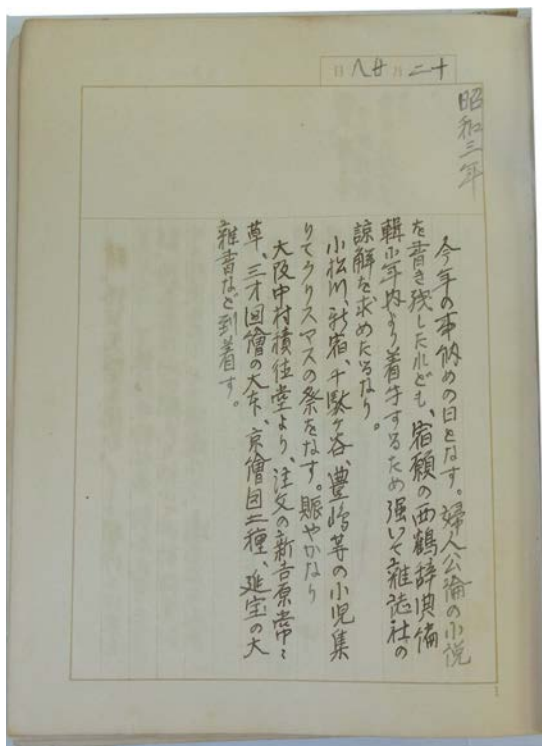 十二月廿八日
昭和三年
今年の事納めの日となす。婦人公論の小説
を書き残したれども、宿願の西鶴辞典編
輯に年内より着手するため強いて雑誌社の
諒解を求めたるなり。
小松川、新宿、千駄ヶ谷、豊嶋等の小児集
りてクリスマスの祭をなす。賑やかなり
大阪中村積徳堂より、注文の新吉原常々
草、三才図繪の大本、京繪図二種、延宝の大
雑書など到着す。